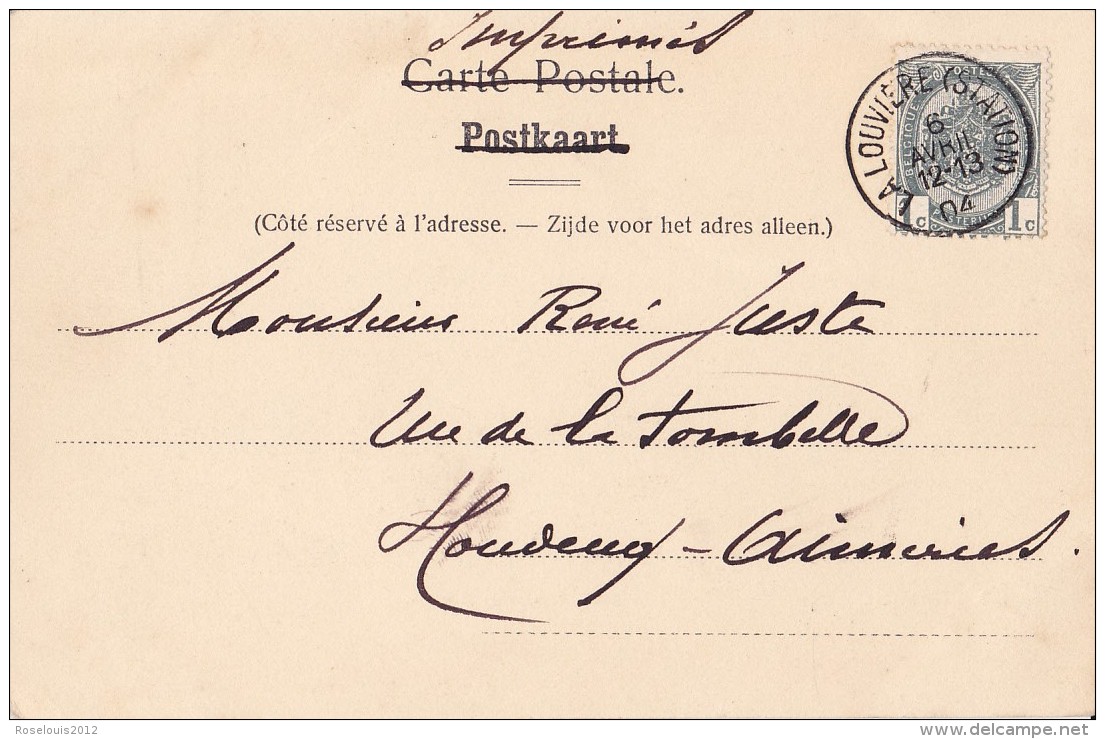 Imprimés
Carte Postale.
Postkaart
(Côté réservé à l'adresse. — Zijde voor het adres alleen.)
LA LOUVIÈRE (STATION)
6
AVRIL
12-13
04
BELGIQUE
1c
1c
Monsieur René Juste
Rue de la Tombelle
Houdeng-Aimeries.
Roselouis2012
www.delcampe.net